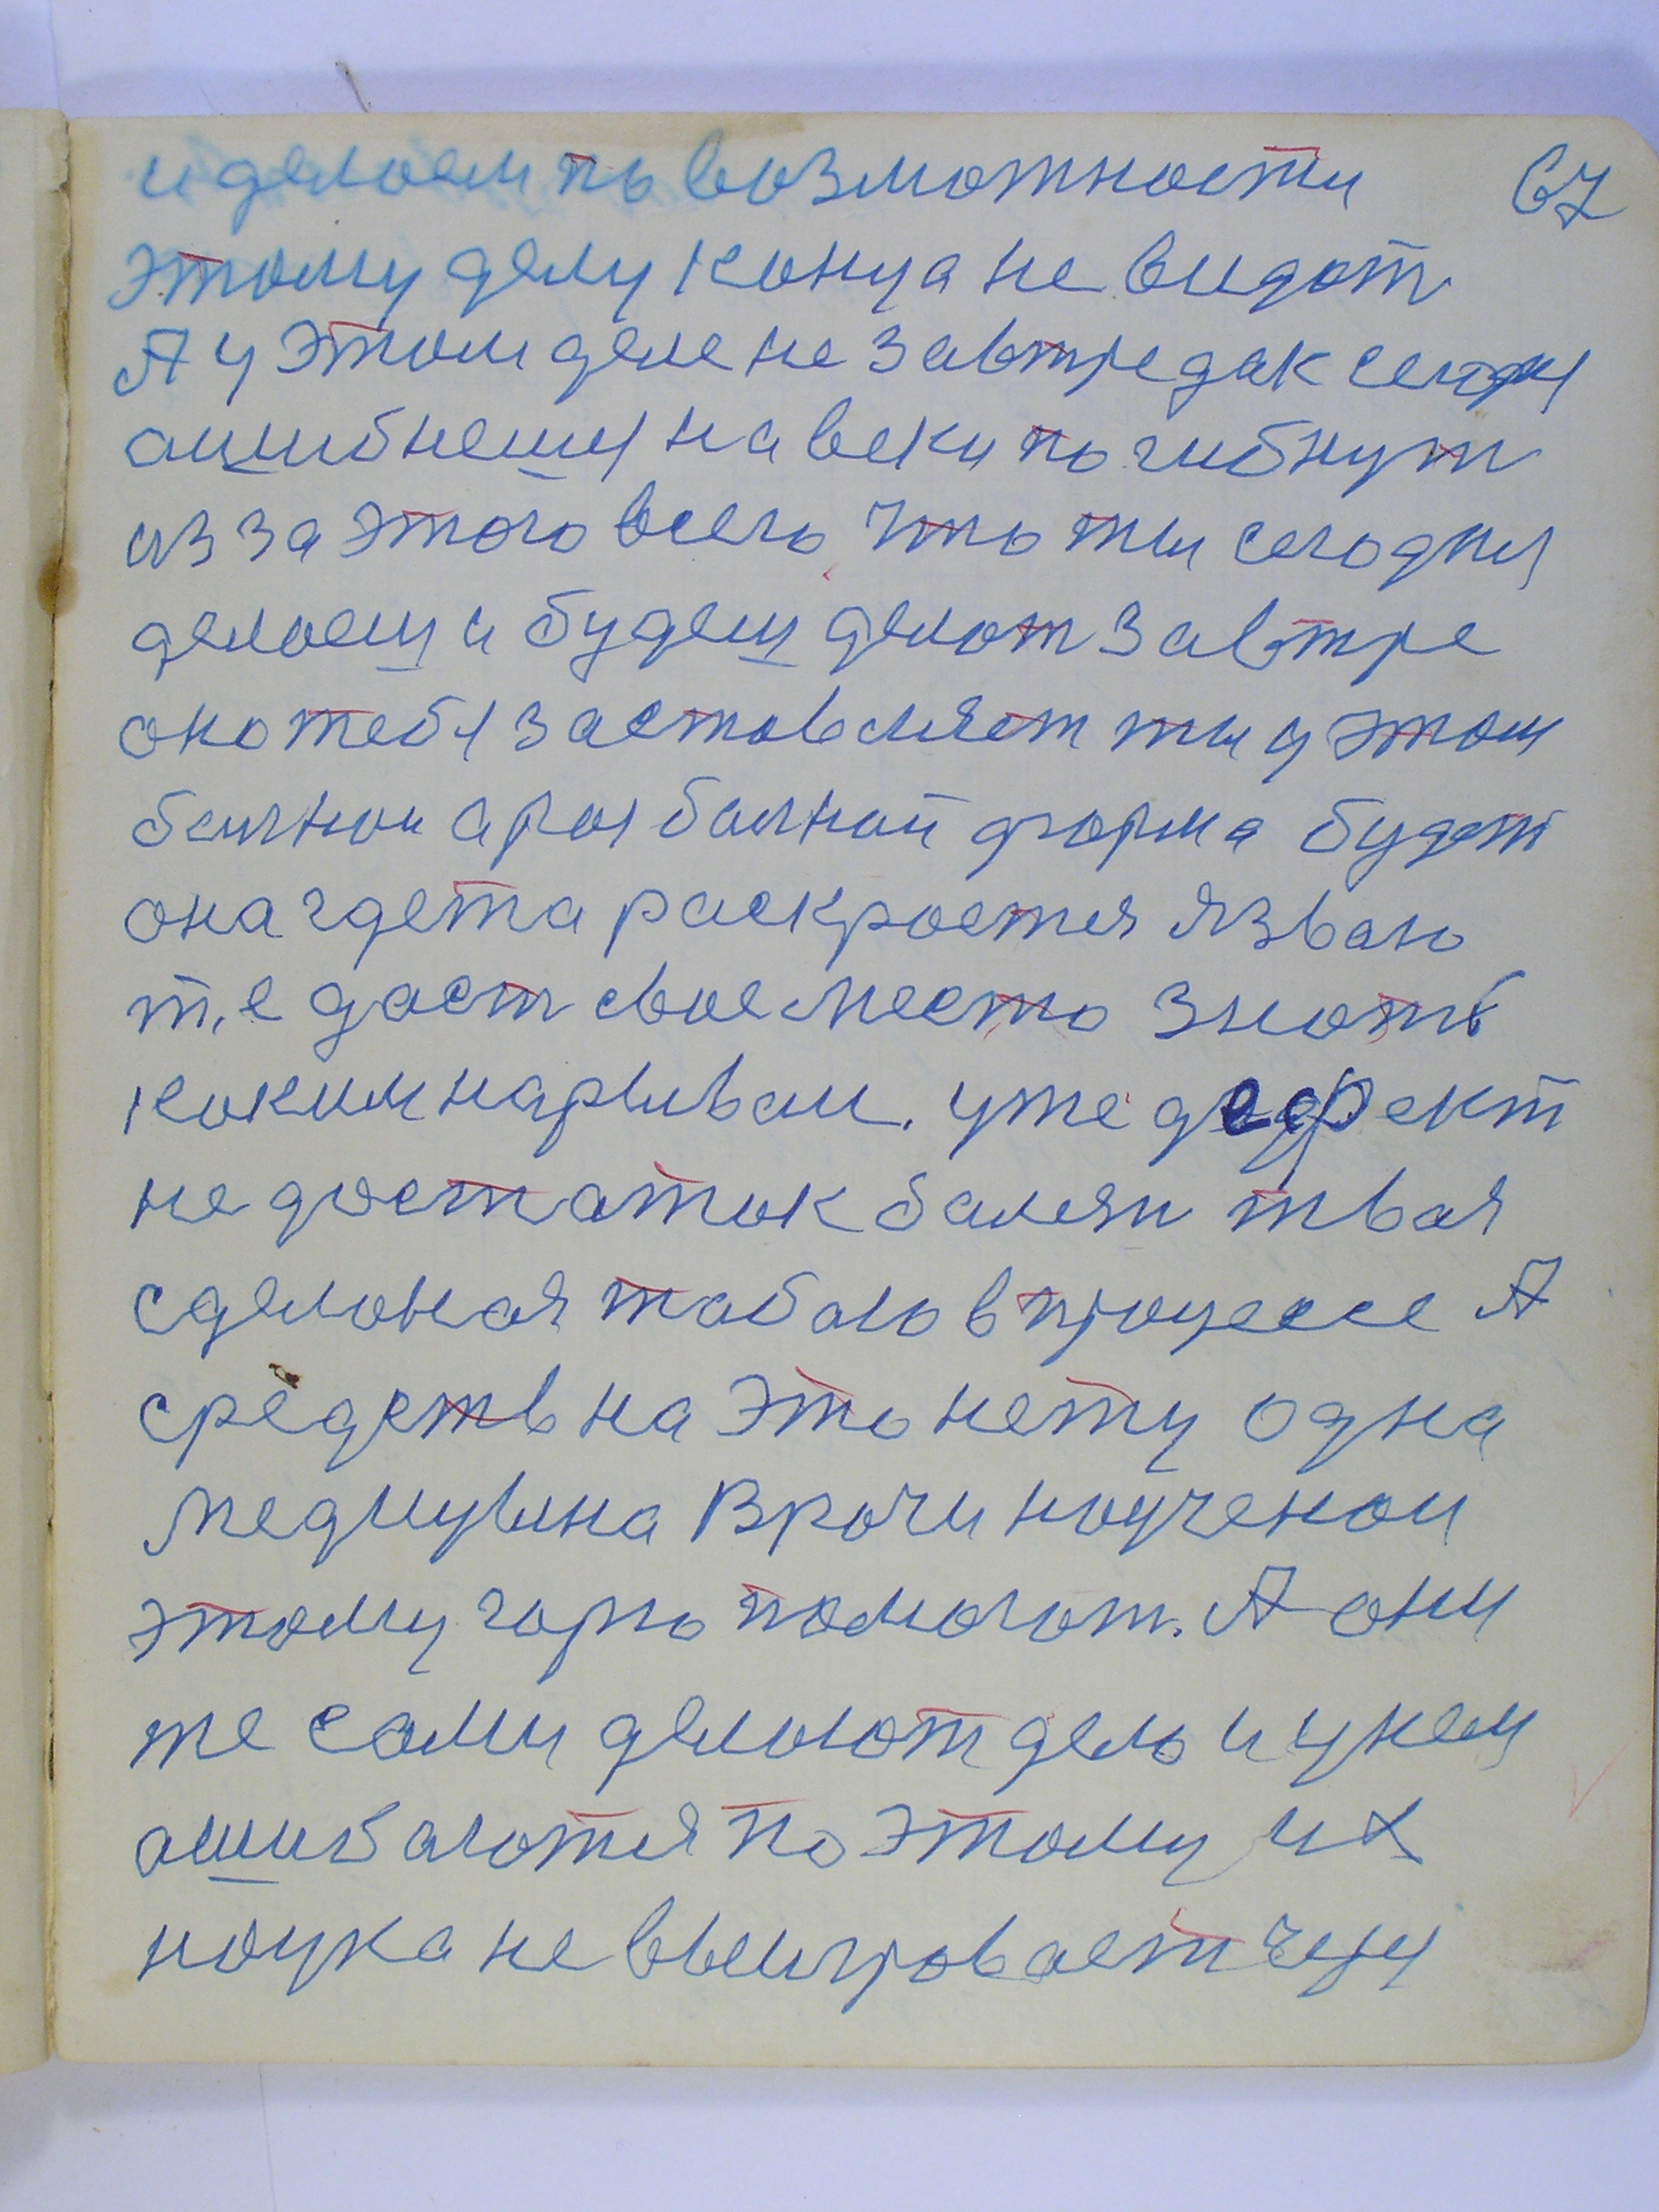 и делоем по возможности 67
этому делу конца не видот
А у этом деле не завтре дак
ошибнешя на веки погибнут
из за этого всего что ты сегодня
делоеш и будеш делот завтре
оно тебя заставляет ты у этом
форма будет
она гдета раскроется язваю
т.е дает свое место зноть
коким нарывам. уже дефект
недостаток балезн твая
сделоная табаю в процессе А
средств на это нету одна
медицына Врачи наученои
этому горю помогот. А они
же сами делоют дело и у нем
ошибаются по этому их
наука не выигровает